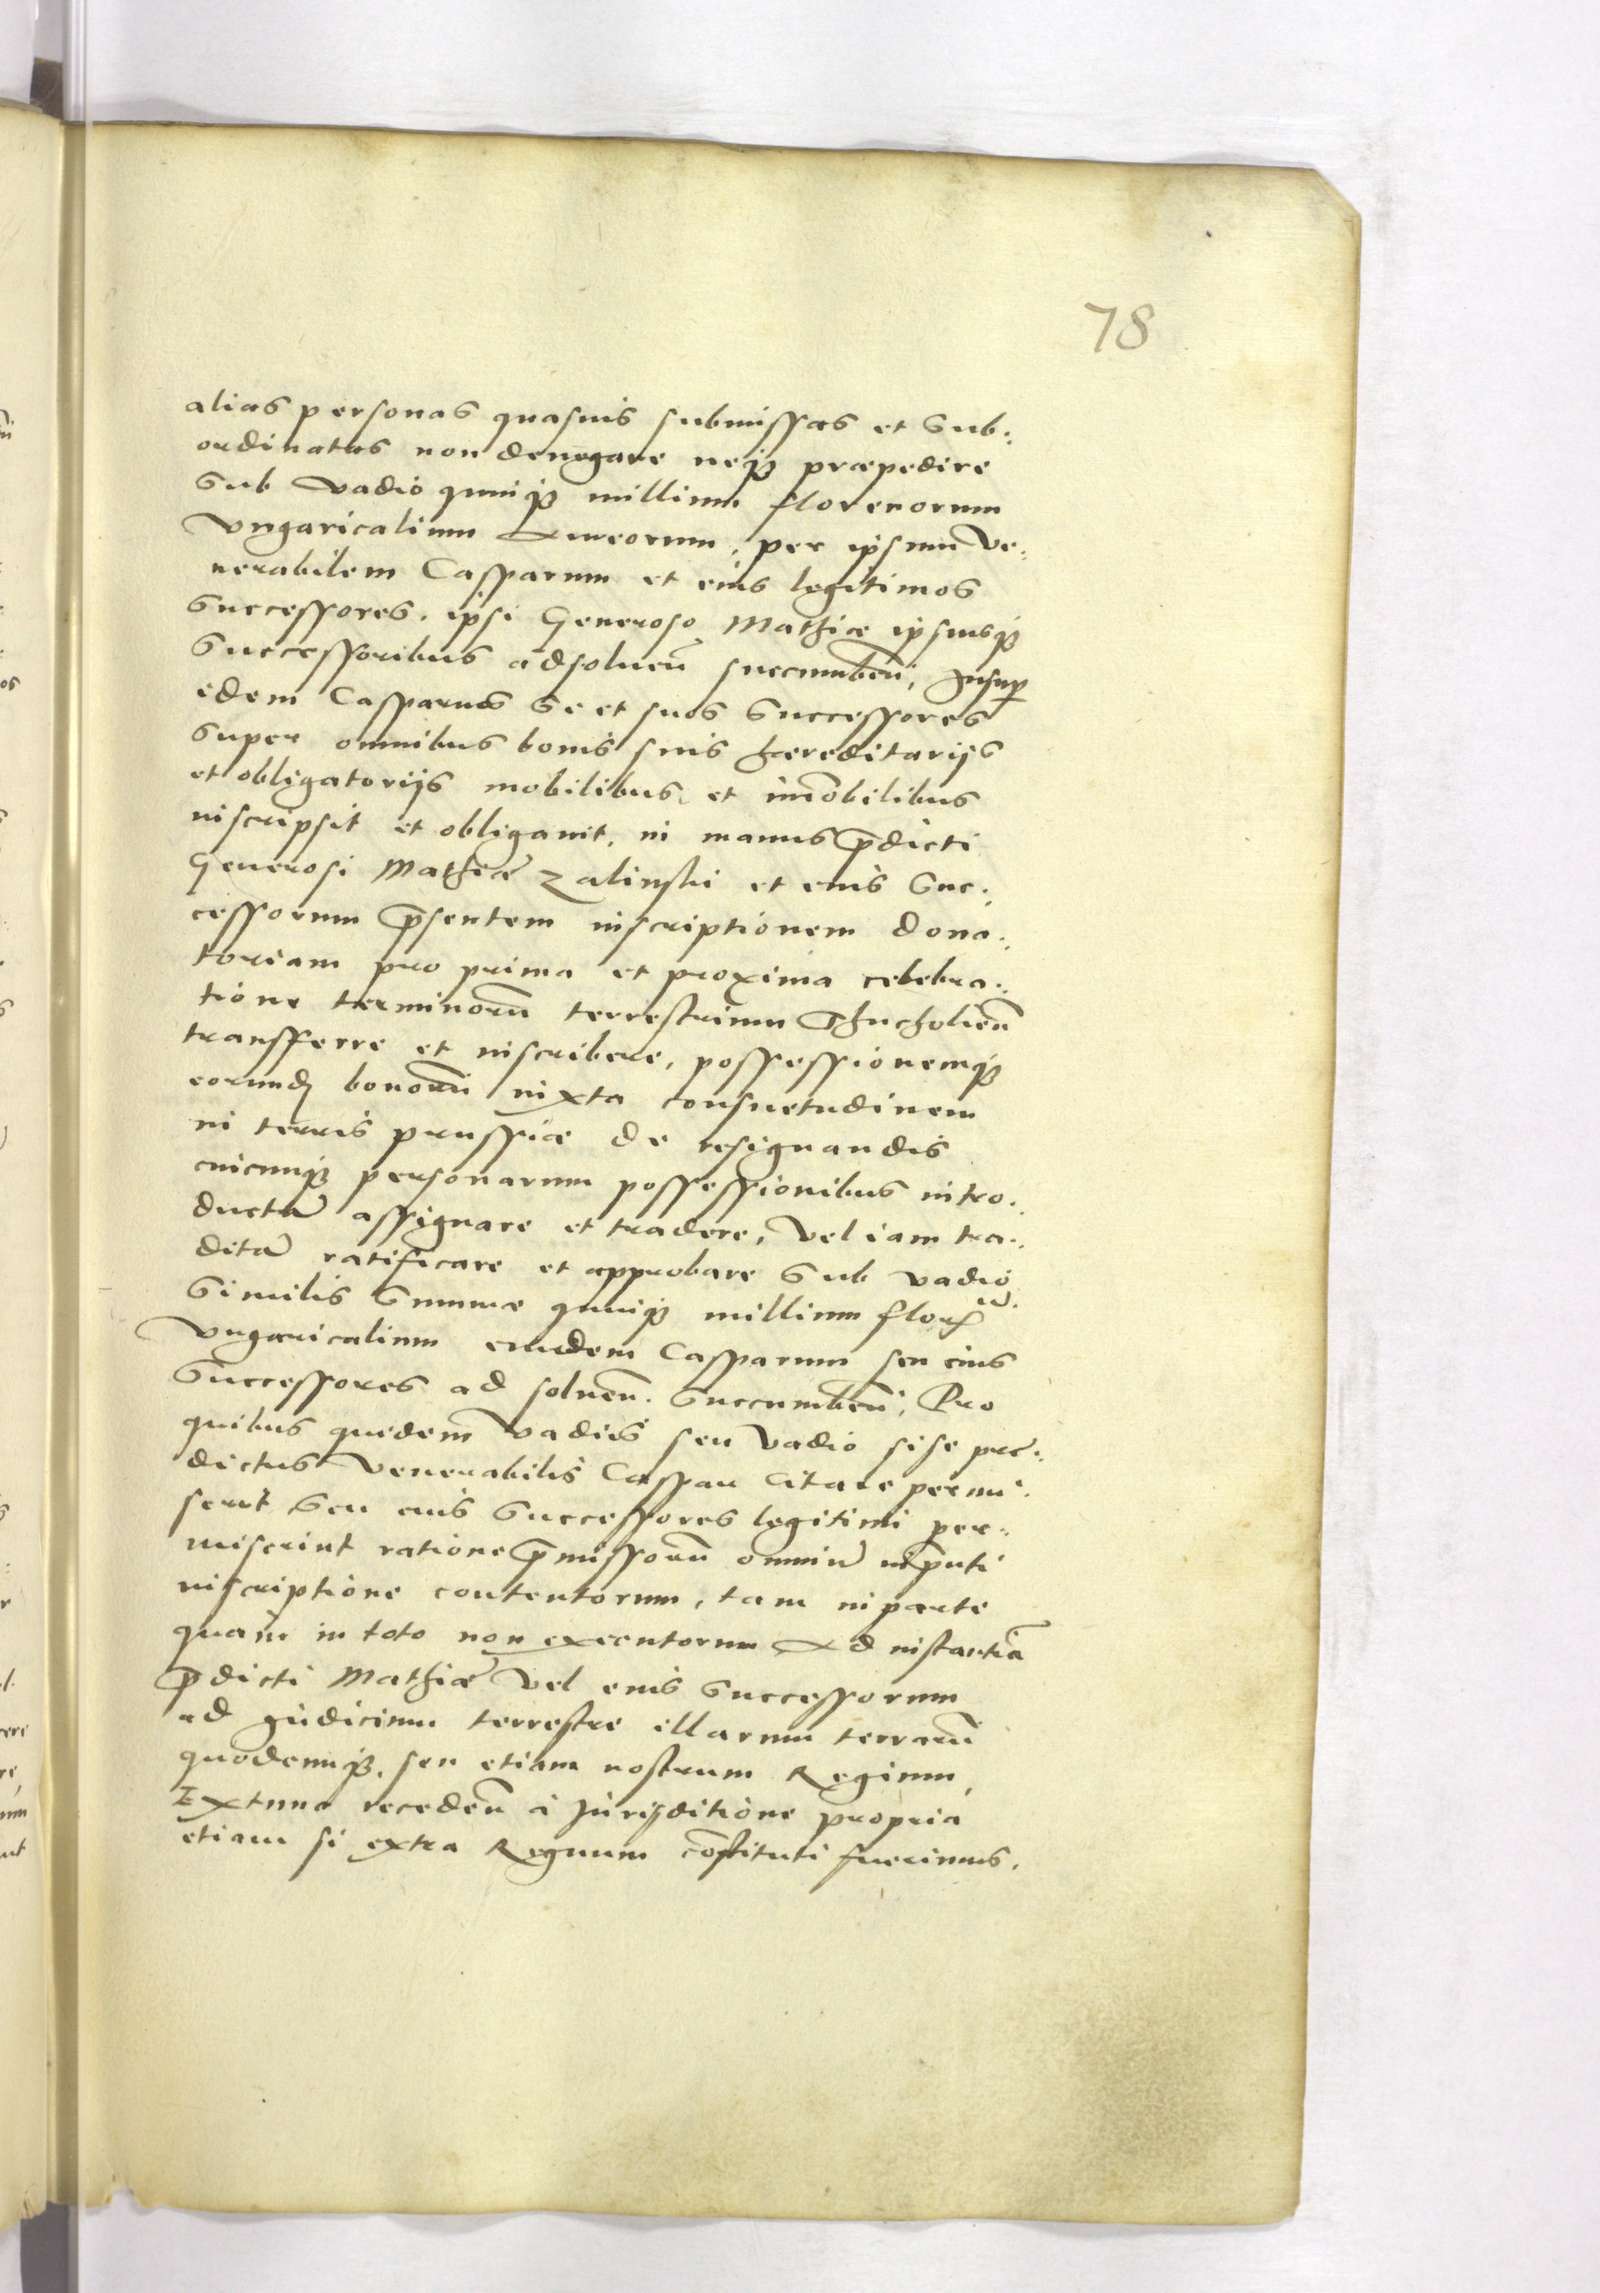 78
alias personas quasuis submissas et sub:
ordinatas non denegare neq̨ præpedire
sub vadio quinq̨ millium florenorum
Vngaricalium Aureorum, per ipsum Ve:
nerabilem Casparum et eius legitimos
successores, ipsi Generoso Mathiæ ipsiusq̨
successoribus adsoluen̄ succumben̄, Insup̱
idem Casparus se et suos successores
super omnibus bonis suis hæreditarijs
et obligatorijs mobilibus et im̄obilibus
inscripsit et obligauit, in manus p̄dicti
Generosi Mathiæ Zalinski et eius suc:
cessorum p̄sentem inscriptionem dona:
toriam pro prima et proxima celebra:
tione terminorū terrestrium Thucholien̄
transferre et inscribere, possessionemq̨
eorund̨ bonorū iuxta consuetudinem
in terris prussiæ de resignandis
cuicunq̨ personarum possessionibus intro:
ductā assignare et tradere, vel iam tra:
ditā ratificare et approbare sub vadio
similis summæ quinq̨ millium florꝭ
Vngaricalium eundem Casparum seu eius
successores ad soluen̄. succumben̄, Pro
quibus quidem vadiis seu vadio si se præ:
dictus Venerabilis Caspar citare permi:
serit seu eius successores legitimi per:
miserint ratione p̄missorū omniū in p̄nti
inscriptione contentorum, tam in parte
quam in toto non executorum Ad instantiā
p̄dicti Mathiæ vel eius successorum
ad iudicium terrestre illarum terrarū
quodcunq̨, seu etiam nostrum Regium,
Extunc receden̄ à Jurisditione propria
etiam si extra Regnum cōstituti fuerimus,